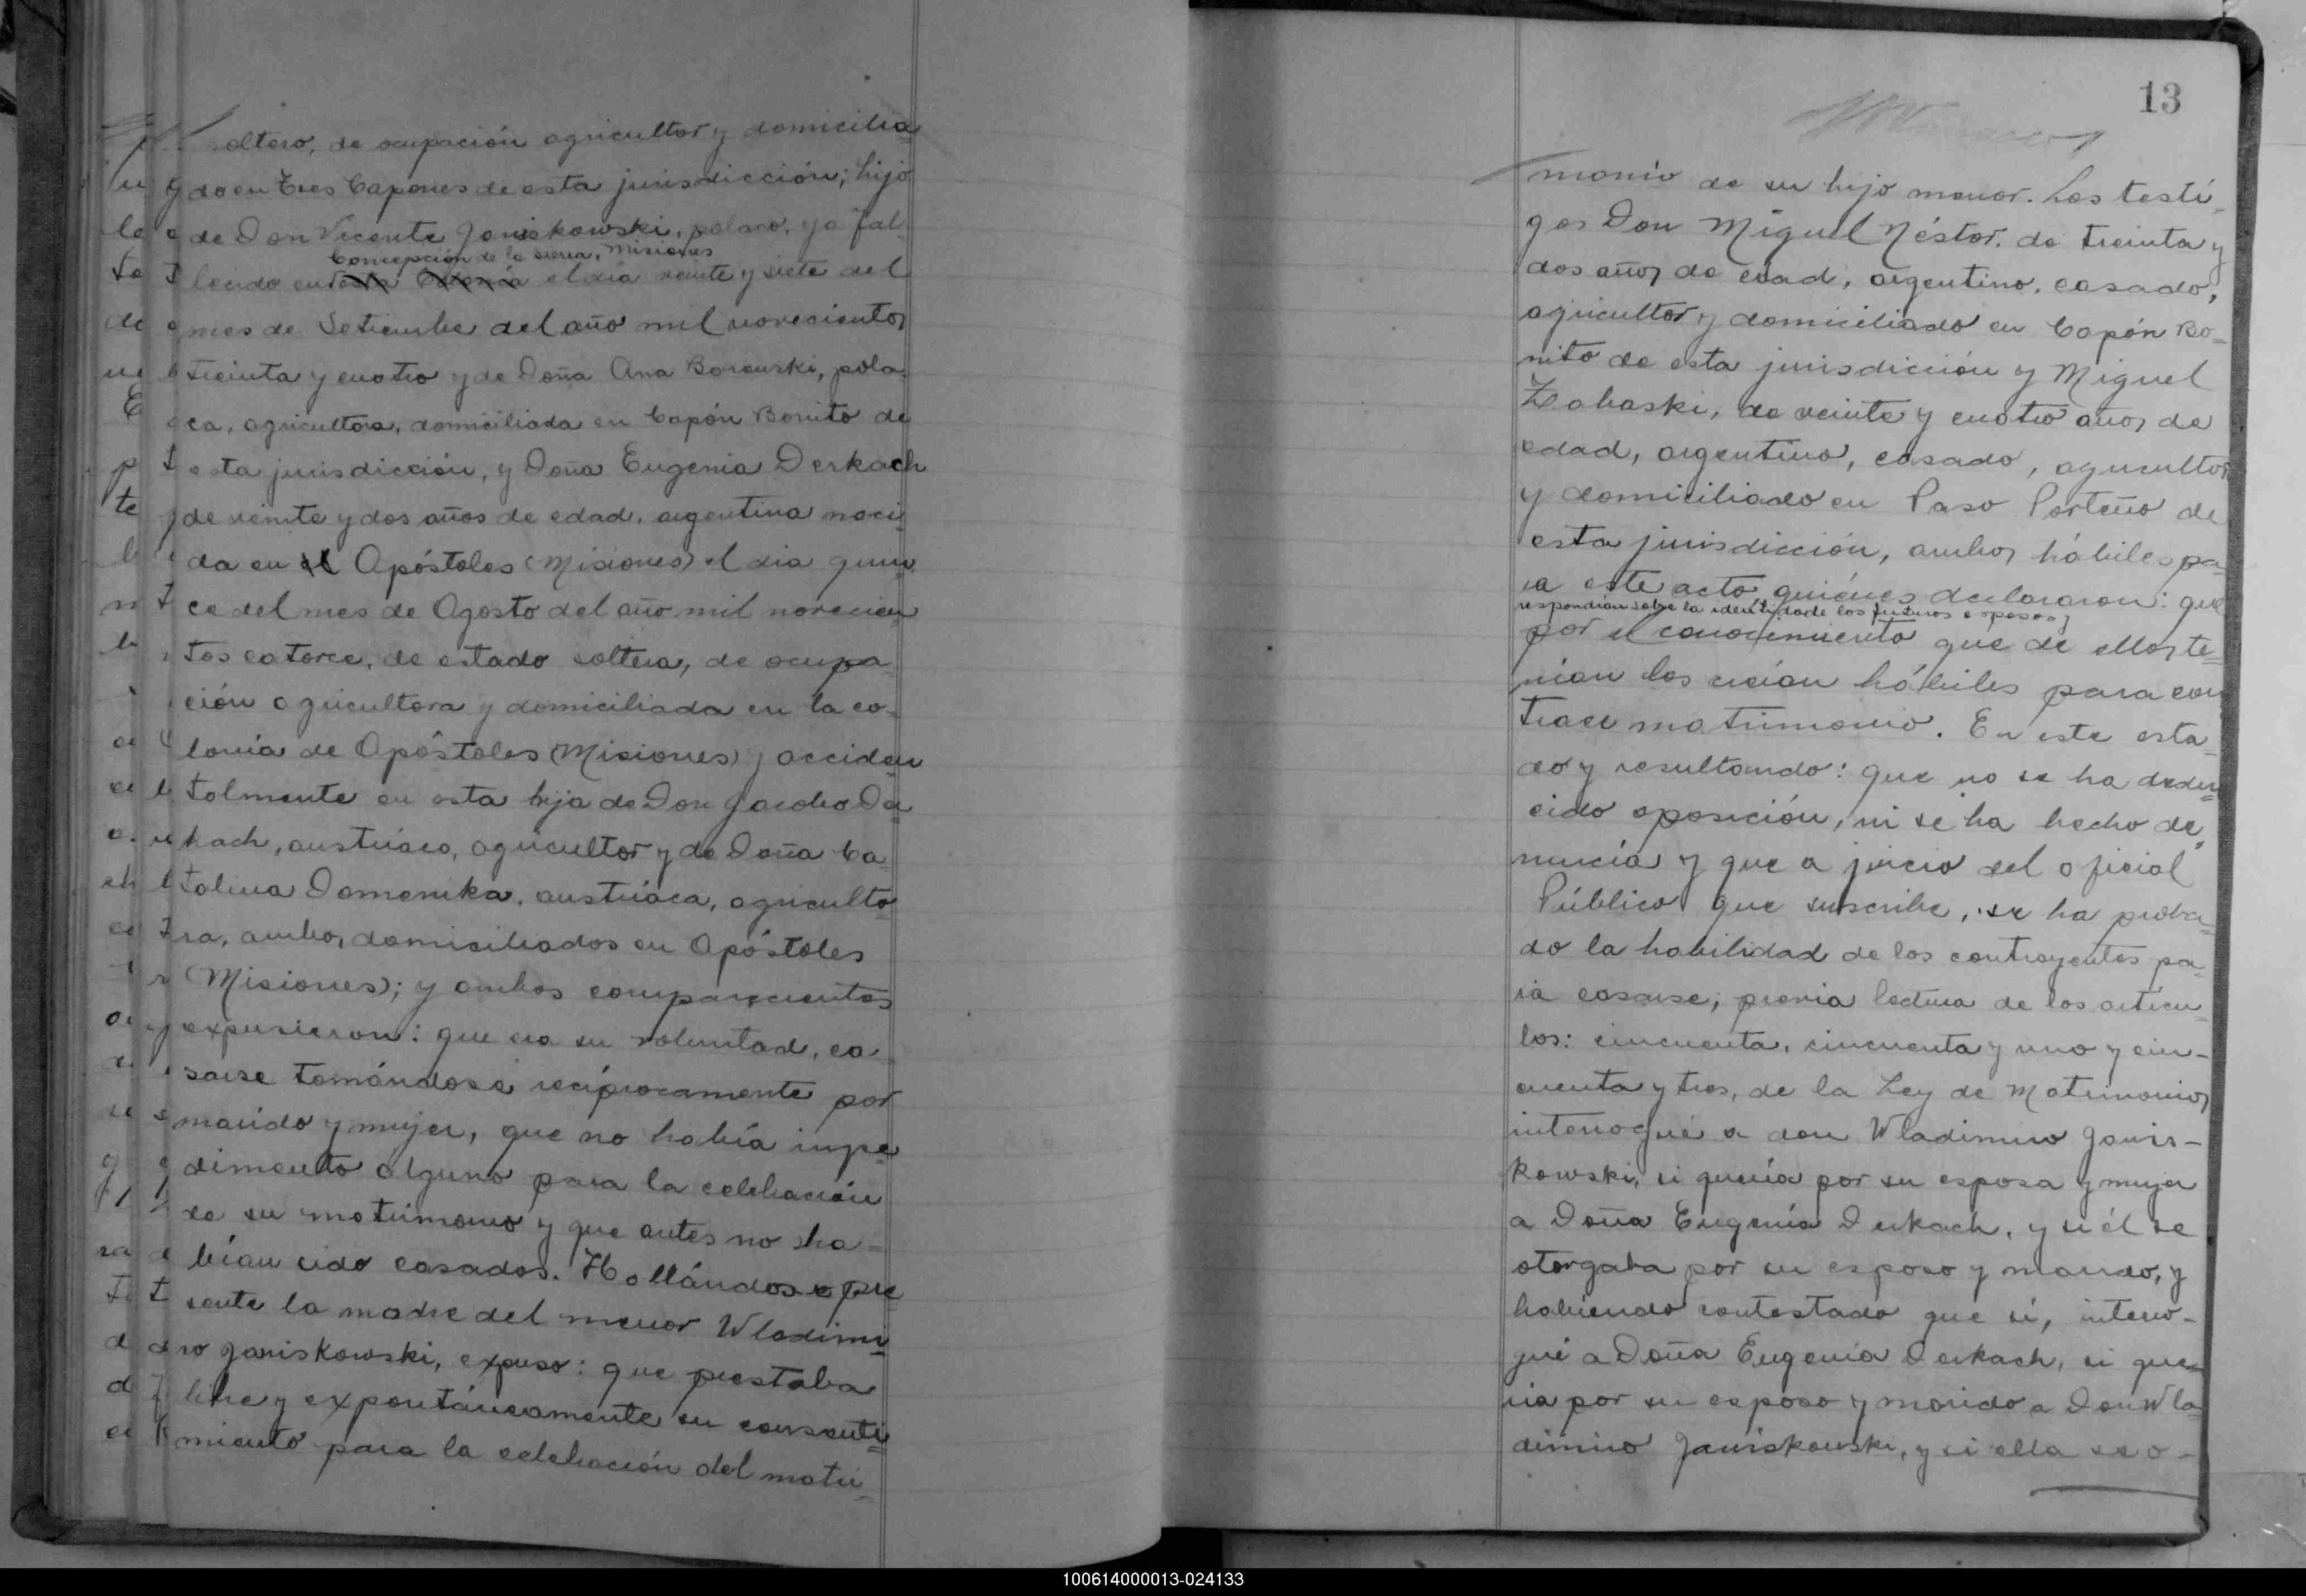 soltero, de ocupación agricultor y domicilia=
do en Tres Capones de esta jurisdicción; hijo
de Don Vicente Janiskowski, polaco, ya fal-
Concepción de la sierra, Misiones
lecido en esta Colonia el día veinte y siete del
mes de Setiembre del año mil novecientos
treinta y cuatro y de Doña Ana Borouski, pola=
ca, agricultora, domiciliada en Capón Bonito de
esta jurisdicción, y Doña Eugenia Derkach
de veinte y dos años de edad, argentina naci=
da en el Apóstoles (Misiones) el dia quin=
ce del mes de Agosto del año mil novecien=
tos catorce, de estado soltera, de ocupa=
ción agricultora y domiciliada en la co=
lonia de Apóstoles (Misiones) y acciden=
talmente en esta hija de Don Jacobo De=
rkach, austríaco, agricultor y de Doña Ca=
talina Domenika, austríaca, agriculto=
ra, ambos domiciliados en Apóstoles
(Misiones); y ambos comparecientes
expusieron: que era su voluntad, ca=
sarse tomándose recíprocamente por
marido y mujer, que no había impe=
dimento alguno para la celebración
de su matrimonio y que antes no ha=
bían sido casados. Hallándose pre=
sente la madre del menor Wladimi=
ro Janiskowski, expuso: que prestaba
libre y expontáneamente su consenti=
miento para la celebración del matri=
13
monio de su hijo menor. Los testi=
gos Don Miguel Néstor, de treinta y
dos años de edad, argentino, casado,
agricultor y domiciliado en Capón Bo=
nito de esta jurisdicción y Miguel
Zabaski, de veinte y cuatro años de
edad, argentino, casado, agricultor
y domiciliado en Paso Porteño de
esta jurisdicción, ambos hábiles pa=
ra este acto quiénes declararon: que
respondían sobre la identidad de los futuros esposos y
por el conocimiento que de ellos te=
nían los creían hábiles para con=
traer matrimonio. En este esta=
do y resultando: que no se ha dedu=
cido oposición, ni se ha hecho de=
nuncia y que a juicio del oficial
Público que suscribe, se ha proba=
do la habilidad de los contrayentes pa=
ra casarse; previa lectura de los artícu=
los: cincuenta, cincuenta y uno y cin-
cuenta y tres, de la Ley de Matrimonio,
interrogué a don Wladimiro Janis-
kowski, si quería por su esposa y mujer
a Doña Eugenía Derkach, y si él se
otorgaba por su esposo y marido, y
habiendo contestado que sí, interro-
gué a Doña Eugenia Derkach, si que=
ría por su esposo y marido a Don Wla=
dimiro Janiskowski, y si ella se o-
100614000013-024133